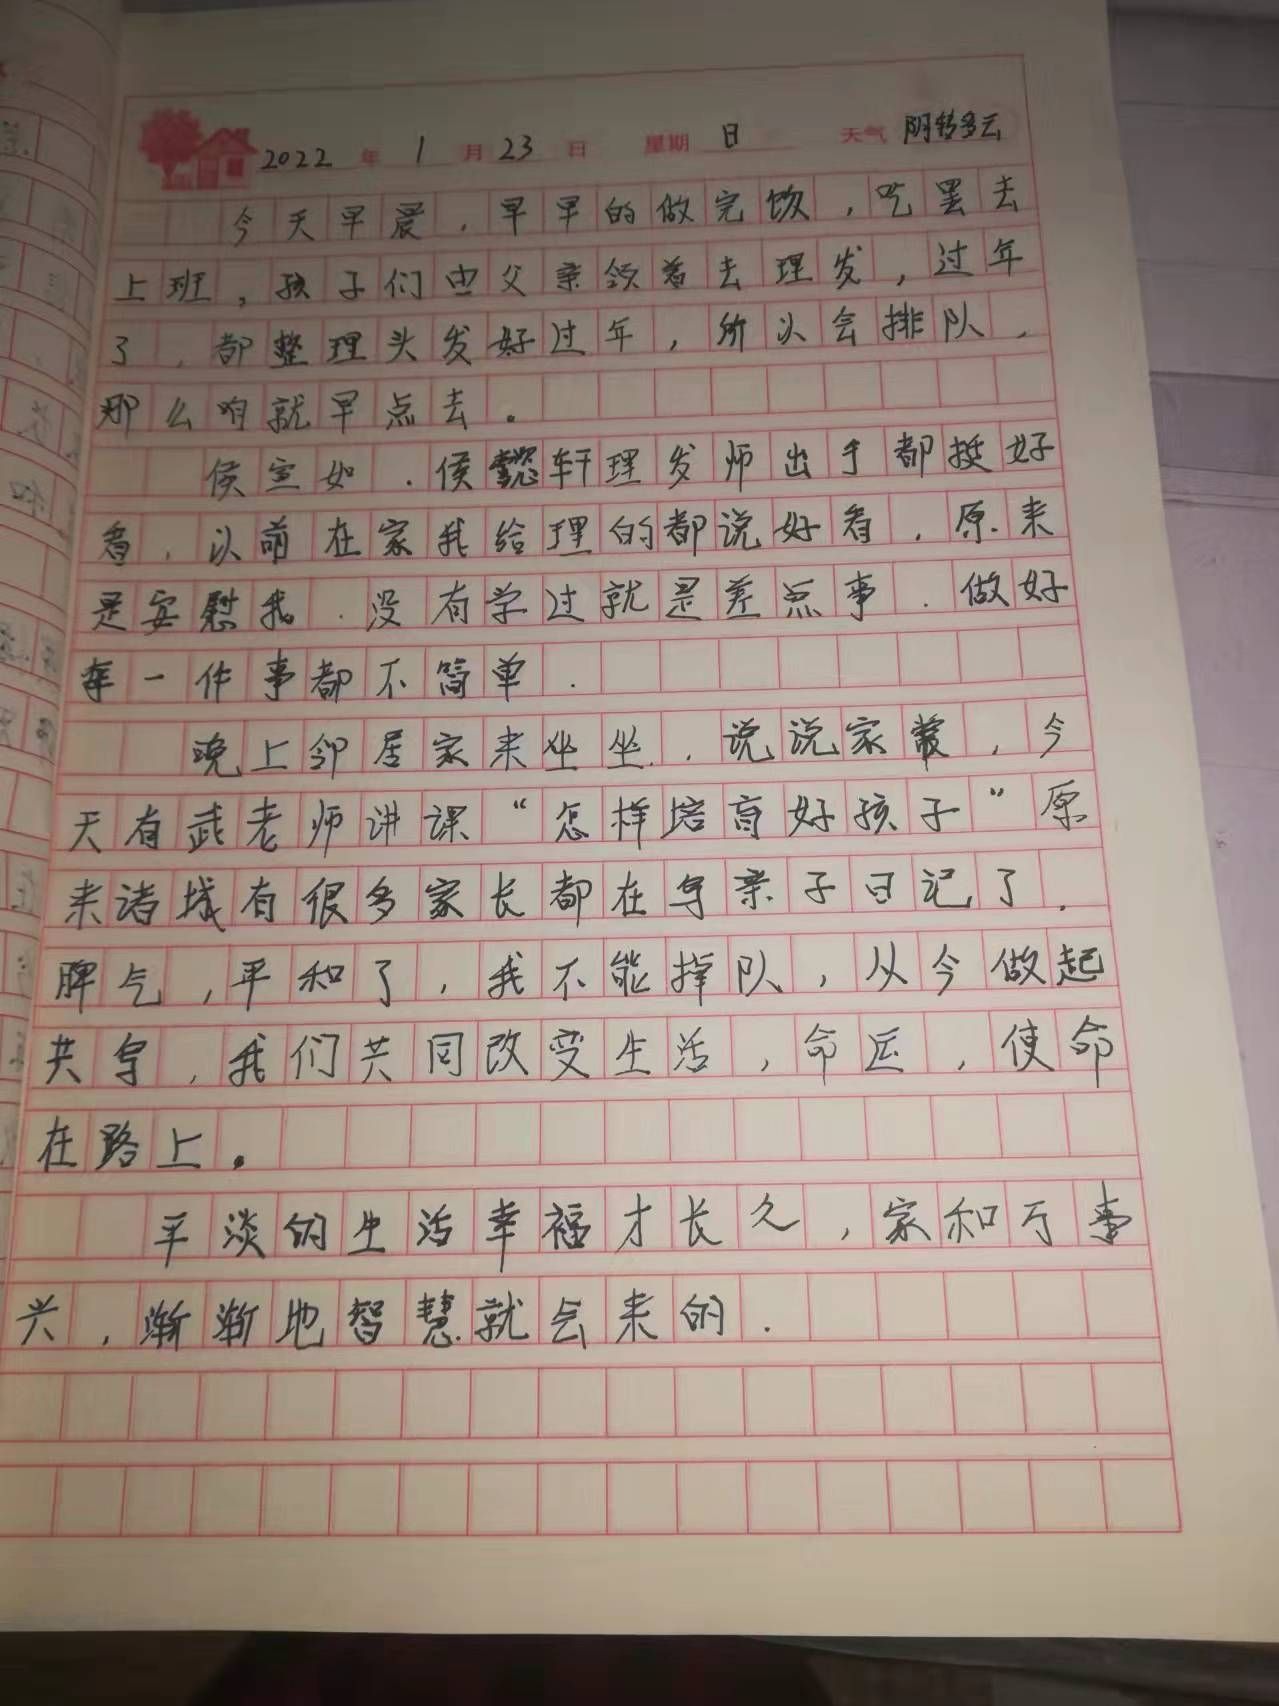 2022年 1月23日 星期日 天气 阴转多云
今天早晨，早早的做完饭，吃罢去
上班，孩子们由父亲领着去理发，过年
了，都整理头发好过年，所以会排队，
那么咱就早点去。
侯宣如．侯懿轩理发师出手都挺好
看，以前在家我给理的都说好看，原来
是安慰我．没有学过就是差点事．做好
每一件事都不简单．
晚上邻居家来坐坐．说说家常，今
天有武老师讲课“怎样培育好孩子”原
来诸城有很多家长都在写亲子日记了．
脾气，平和了，我不能掉队，从今做起
共写，我们共同改变生活，命运，使命
在路上。
平淡的生活幸福才长久，家和万事
兴，渐渐地智慧就会来的．